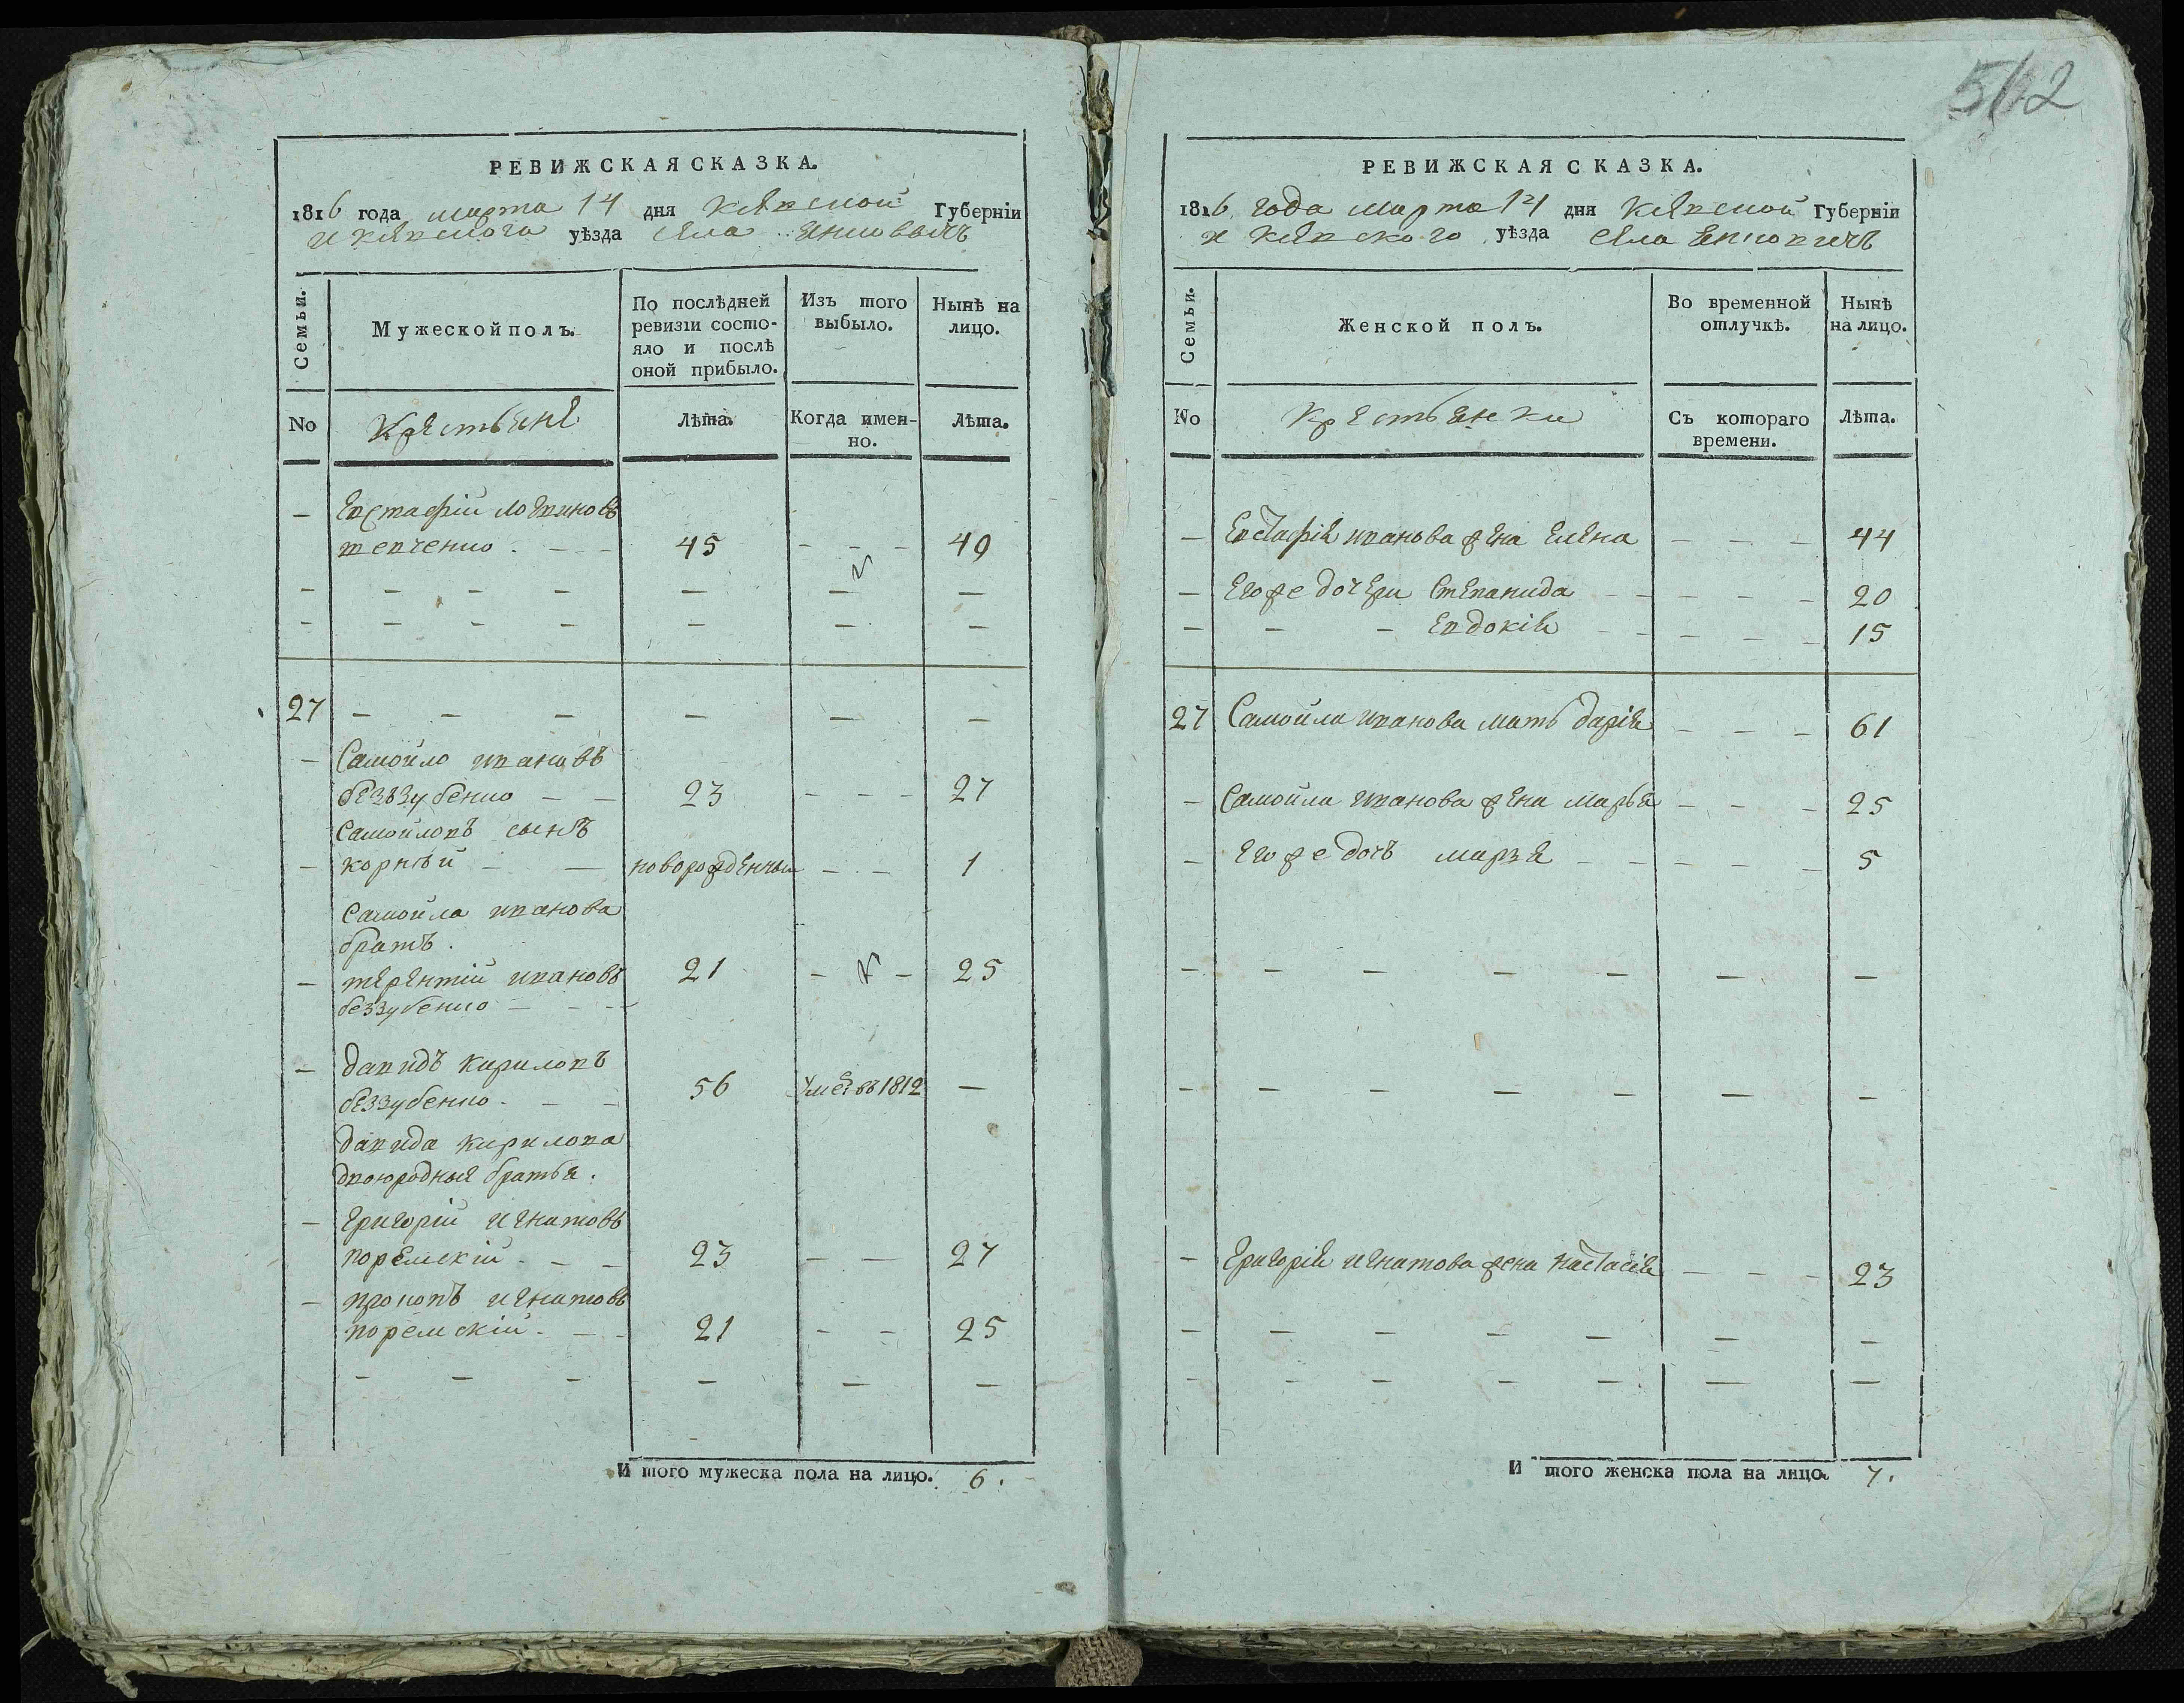 562
РЕВИЖСКАЯ СКАЗКА.
1816 года марта 14 дня Кіевской Губерніи
и Кіевского уѣзда села
Семьи.
Мужеской полъ.
По послѣдней ревизіи состояло и послѣ оной прибыло.
Изъ того выбыло.
Нынѣ на лицо.
No
Крестьяне
Лѣта.
Когда именно.
Лѣта.
— Евстафій Логвиновъ
шевченко - - - 45 - - - 49
27 — — — — — —
— Самойло ивановъ
беззубенко — — 23 - - - 27
Самойловъ сынъ
— корнѣй — — новорожденный - - 1
Самойла иванова
братъ.
— терентій ивановъ 21 - - 25
беззубенко — - -
— давидъ кириловъ
беззубенко - — — 56 умеръ въ 1812 —
давида кирилова
двоюродныя братья.
— григорій игнатовъ
поремскій - - - 23 — — 27
— прокопъ игнатовъ
поремскій - - - 21 - - 25
— — — — — —
И того мужеска пола на лицо. 6.
РЕВИЖСКАЯ СКАЗКА.
1816 года марта 14 дня Кіевской Губерніи
и Кіевского уѣзда села
Семьи.
Женской полъ.
Во временной отлучкѣ.
Нынѣ на лицо.
No
Крестьянки
Съ котораго времени.
Лѣта.
— Евстафія иванова жена Елена — — — 44
— Его же дочери Степанида - - - - - 20
— — — Евдокія - - - - - 15
27 Самойла иванова мать дарія - - - 61
— Самойла иванова жена марья - - - 25
— Его же дочь - - - - - 5
— — — — — — —
— — — — — — —
— Григорія игнатова жена настасія — — - 23
— — — — — — —
— — — — — — —
И того женска пола на лицо. 7.